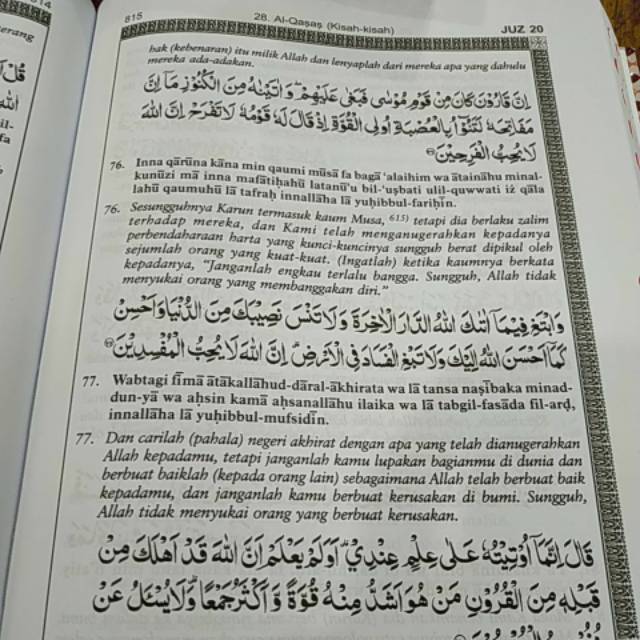 814
erang
815
28. Al-Qaṣaṣ (Kisah-kisah)
JUZ 20
hak (kebenaran) itu milik Allah dan lenyaplah dari mereka apa yang dahulu
mereka ada-adakan.
اِنَّ قَارُوْنَ كَانَ مِنْ قَوْمِ مُوْسٰى فَبَغٰى عَلَيْهِمْ ۖوَاٰتَيْنٰهُ مِنَ الْكُنُوْزِ مَآ اِنَّ
مَفَاتِحَهٗ لَتَنُوْۤاُ بِالْعُصْبَةِ اُولِى الْقُوَّةِ اِذْ قَالَ لَهٗ قَوْمُهٗ لَا تَفْرَحْ اِنَّ اللّٰهَ
لَا يُحِبُّ الْفَرِحِيْنَ ۝٧٦
76. Inna qārūna kāna min qaumi mūsā fa bagā ‘alaihim wa ātaināhu minal-
kunūzi mā inna mafātiḥahū latanū'u bil-‘uṣbati ulil-quwwati iż qāla
lahū qaumuhū lā tafraḥ innallāha lā yuḥibbul-fariḥīn.
76. Sesungguhnya Karun termasuk kaum Musa, 615) tetapi dia berlaku zalim
terhadap mereka, dan Kami telah menganugerahkan kepadanya
perbendaharaan harta yang kunci-kuncinya sungguh berat dipikul oleh
sejumlah orang yang kuat-kuat. (Ingatlah) ketika kaumnya berkata
kepadanya, “Janganlah engkau terlalu bangga. Sungguh, Allah tidak
menyukai orang yang membanggakan diri.”
وَابْتَغِ فِيْمَآ اٰتٰىكَ اللّٰهُ الدَّارَ الْاٰخِرَةَ وَلَا تَنْسَ نَصِيْبَكَ مِنَ الدُّنْيَا وَاَحْسِنْ
كَمَآ اَحْسَنَ اللّٰهُ اِلَيْكَ وَلَا تَبْغِ الْفَسَادَ فِى الْاَرْضِ ۗاِنَّ اللّٰهَ لَا يُحِبُّ الْمُفْسِدِيْنَ ۝٧٧
77. Wabtagi fīmā ātākallāhud-dāral-ākhirata wa lā tansa naṣībaka minad-
dun-yā wa aḥsin kamā aḥsanallāhu ilaika wa lā tabgil-fasāda fil-arḍ,
innallāha lā yuḥibbul-mufsidīn.
77. Dan carilah (pahala) negeri akhirat dengan apa yang telah dianugerahkan
Allah kepadamu, tetapi janganlah kamu lupakan bagianmu di dunia dan
berbuat baiklah (kepada orang lain) sebagaimana Allah telah berbuat baik
kepadamu, dan janganlah kamu berbuat kerusakan di bumi. Sungguh,
Allah tidak menyukai orang yang berbuat kerusakan.
قَالَ اِنَّمَآ اُوْتِيْتُهٗ عَلٰى عِلْمٍ عِنْدِيْۗ اَوَلَمْ يَعْلَمْ اَنَّ اللّٰهَ قَدْ اَهْلَكَ مِنْ
قَبْلِهٖ مِنَ الْقُرُوْنِ مَنْ هُوَ اَشَدُّ مِنْهُ قُوَّةً وَّاَكْثَرُ جَمْعًا ۗوَلَا يُسْـَٔلُ عَنْ